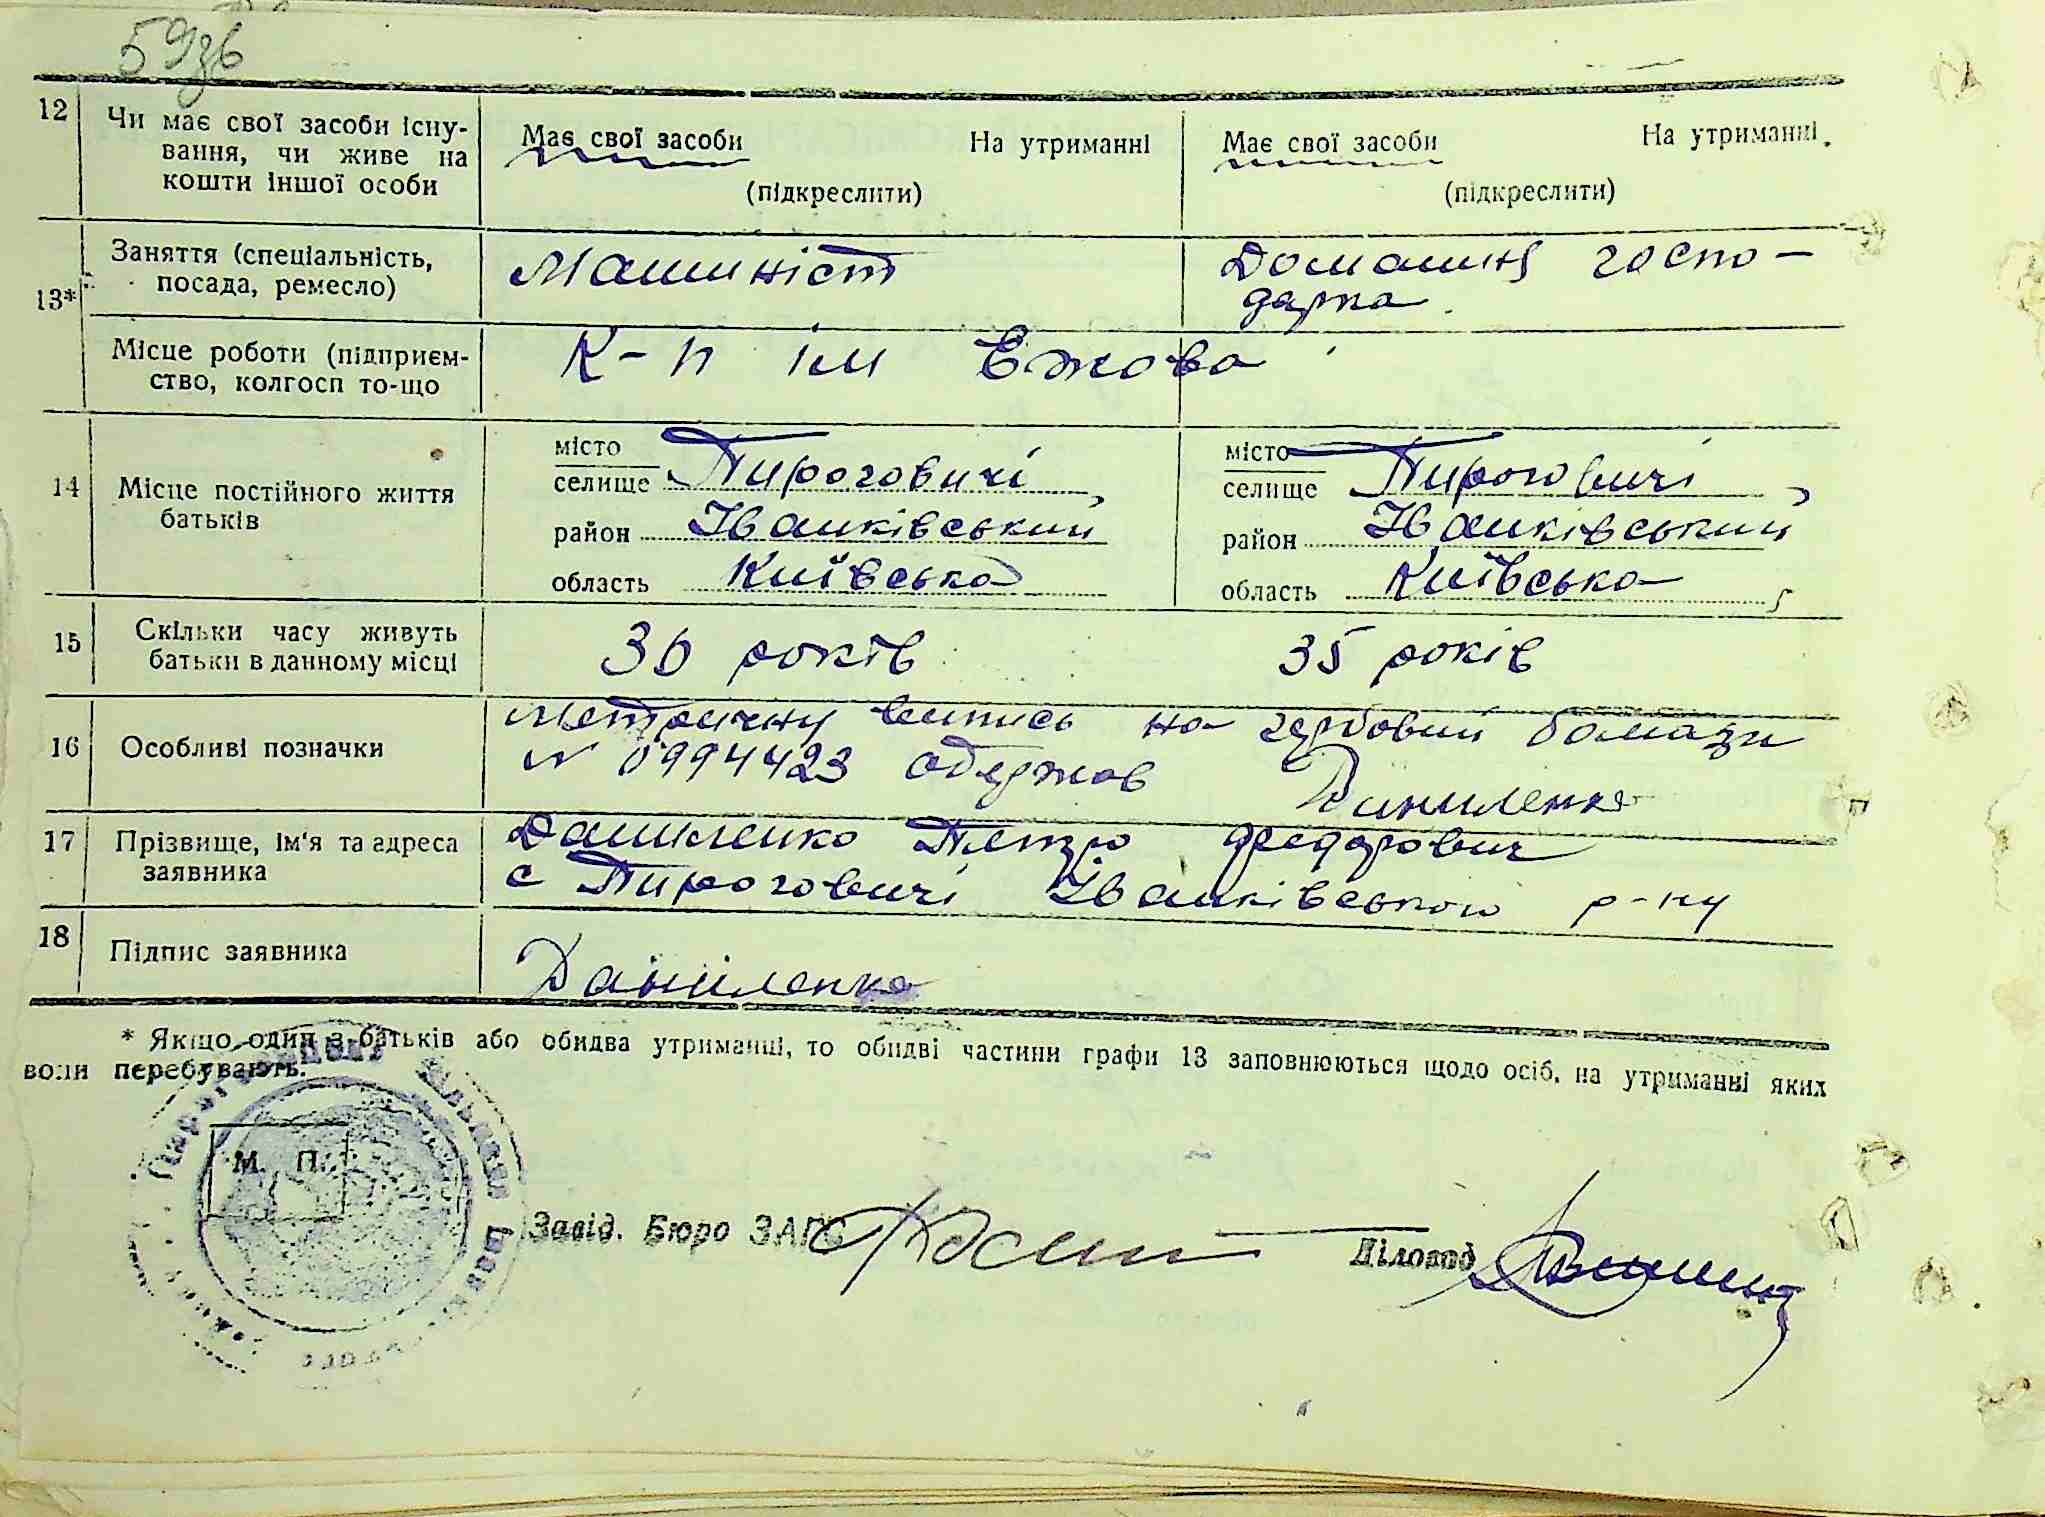 59зв
12 Чи має свої засоби існу-
вання, чи живе на
кошти іншої особи
Має свої засоби На утриманні
(підкреслити)
Має свої засоби На утриманні
(підкреслити)
13*
Заняття (спеціальність,
посада, ремесло)
Машиніст
Домашня госпо-
дарка
Місце роботи (підприєм-
ство, колгосп то-що
К-п ім Ежова
14 Місце постійного життя
батьків
місто
селище Пироговичі
район Іванківський
область Київська
місто
селище Пироговичі
район Іванківський
область Київська
15 Скільки часу живуть
батьки в данному місці
36 років
35 років
16 Особливі позначки
Метричну випись на гербовий бомазі
N 0994423 одержав Даниленко
17 Прізвище, ім'я та адреса
заявника
Даниленко Петро Федорович
с Пироговичі Іванківського р-ну
18 Підпис заявника
Даниленко
* Якщо один з батьків або обидва утриманці, то обидві частини графи 13 заповнюються щодо осіб, на утриманні яких
вони перебувають.
М. П.
Завід. Бюро ЗАГС
Діловод